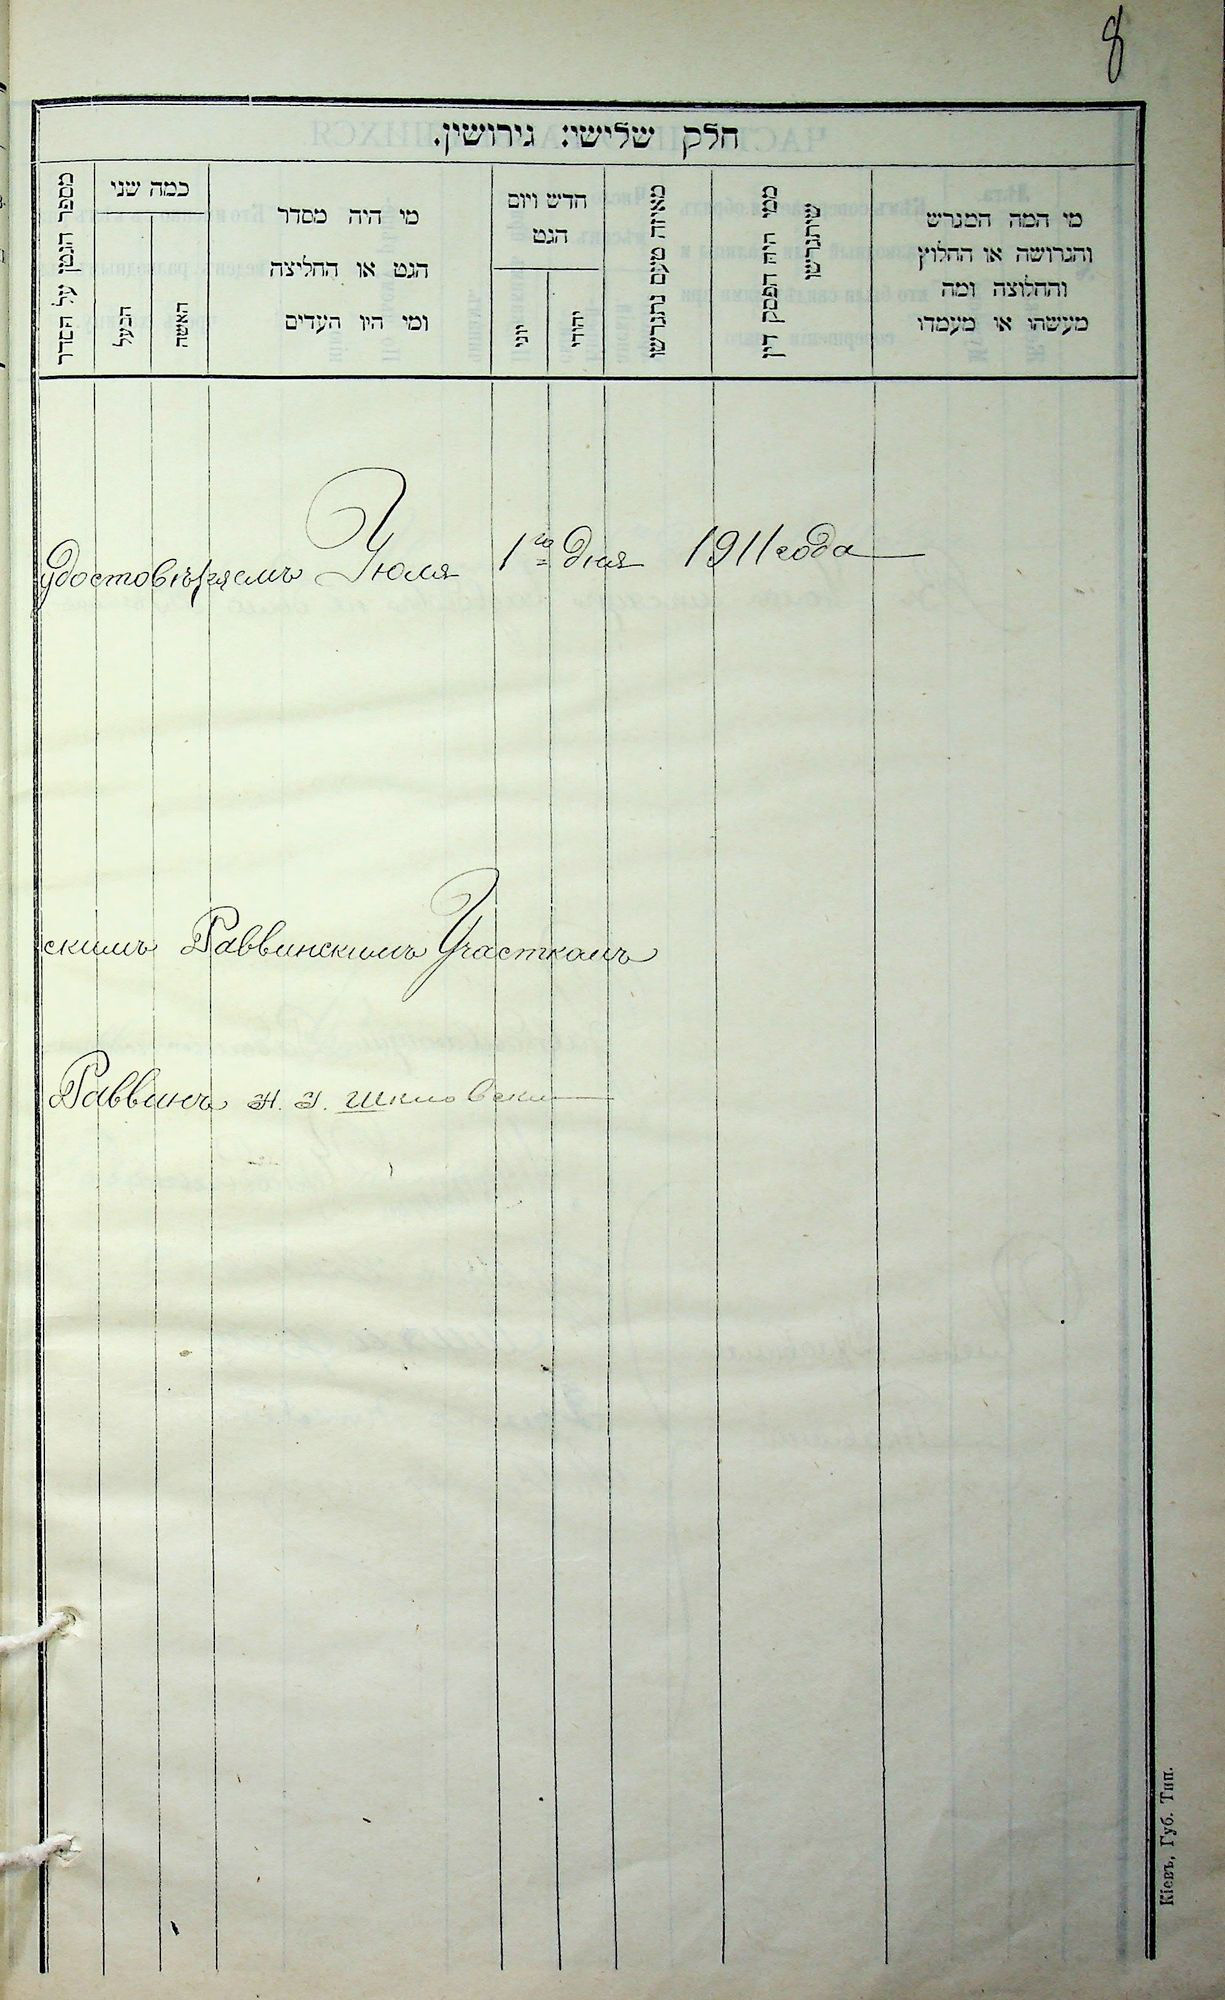 8
חלק שלישי: גירושין.
מי המה המגרש
והגרושה או החלוץ
והחלוצה ומה
מעשהו או מעמדו
ממי היה הפסק דין
שיתגרשו
מאיזה טעם נתגרשו
חדש ויום
הגט
יהודי
יוני
מי היה מסדר
הגט או החליצה
ומי היו העדים
כמה שני
האשה
הבעל
מספר הגטן על הסדר
удостовѣряемъ Июля 1го дня 1911 года
скимъ Раввинскимъ Участкомъ
Раввинъ
Кіевъ, Губ. Тип.